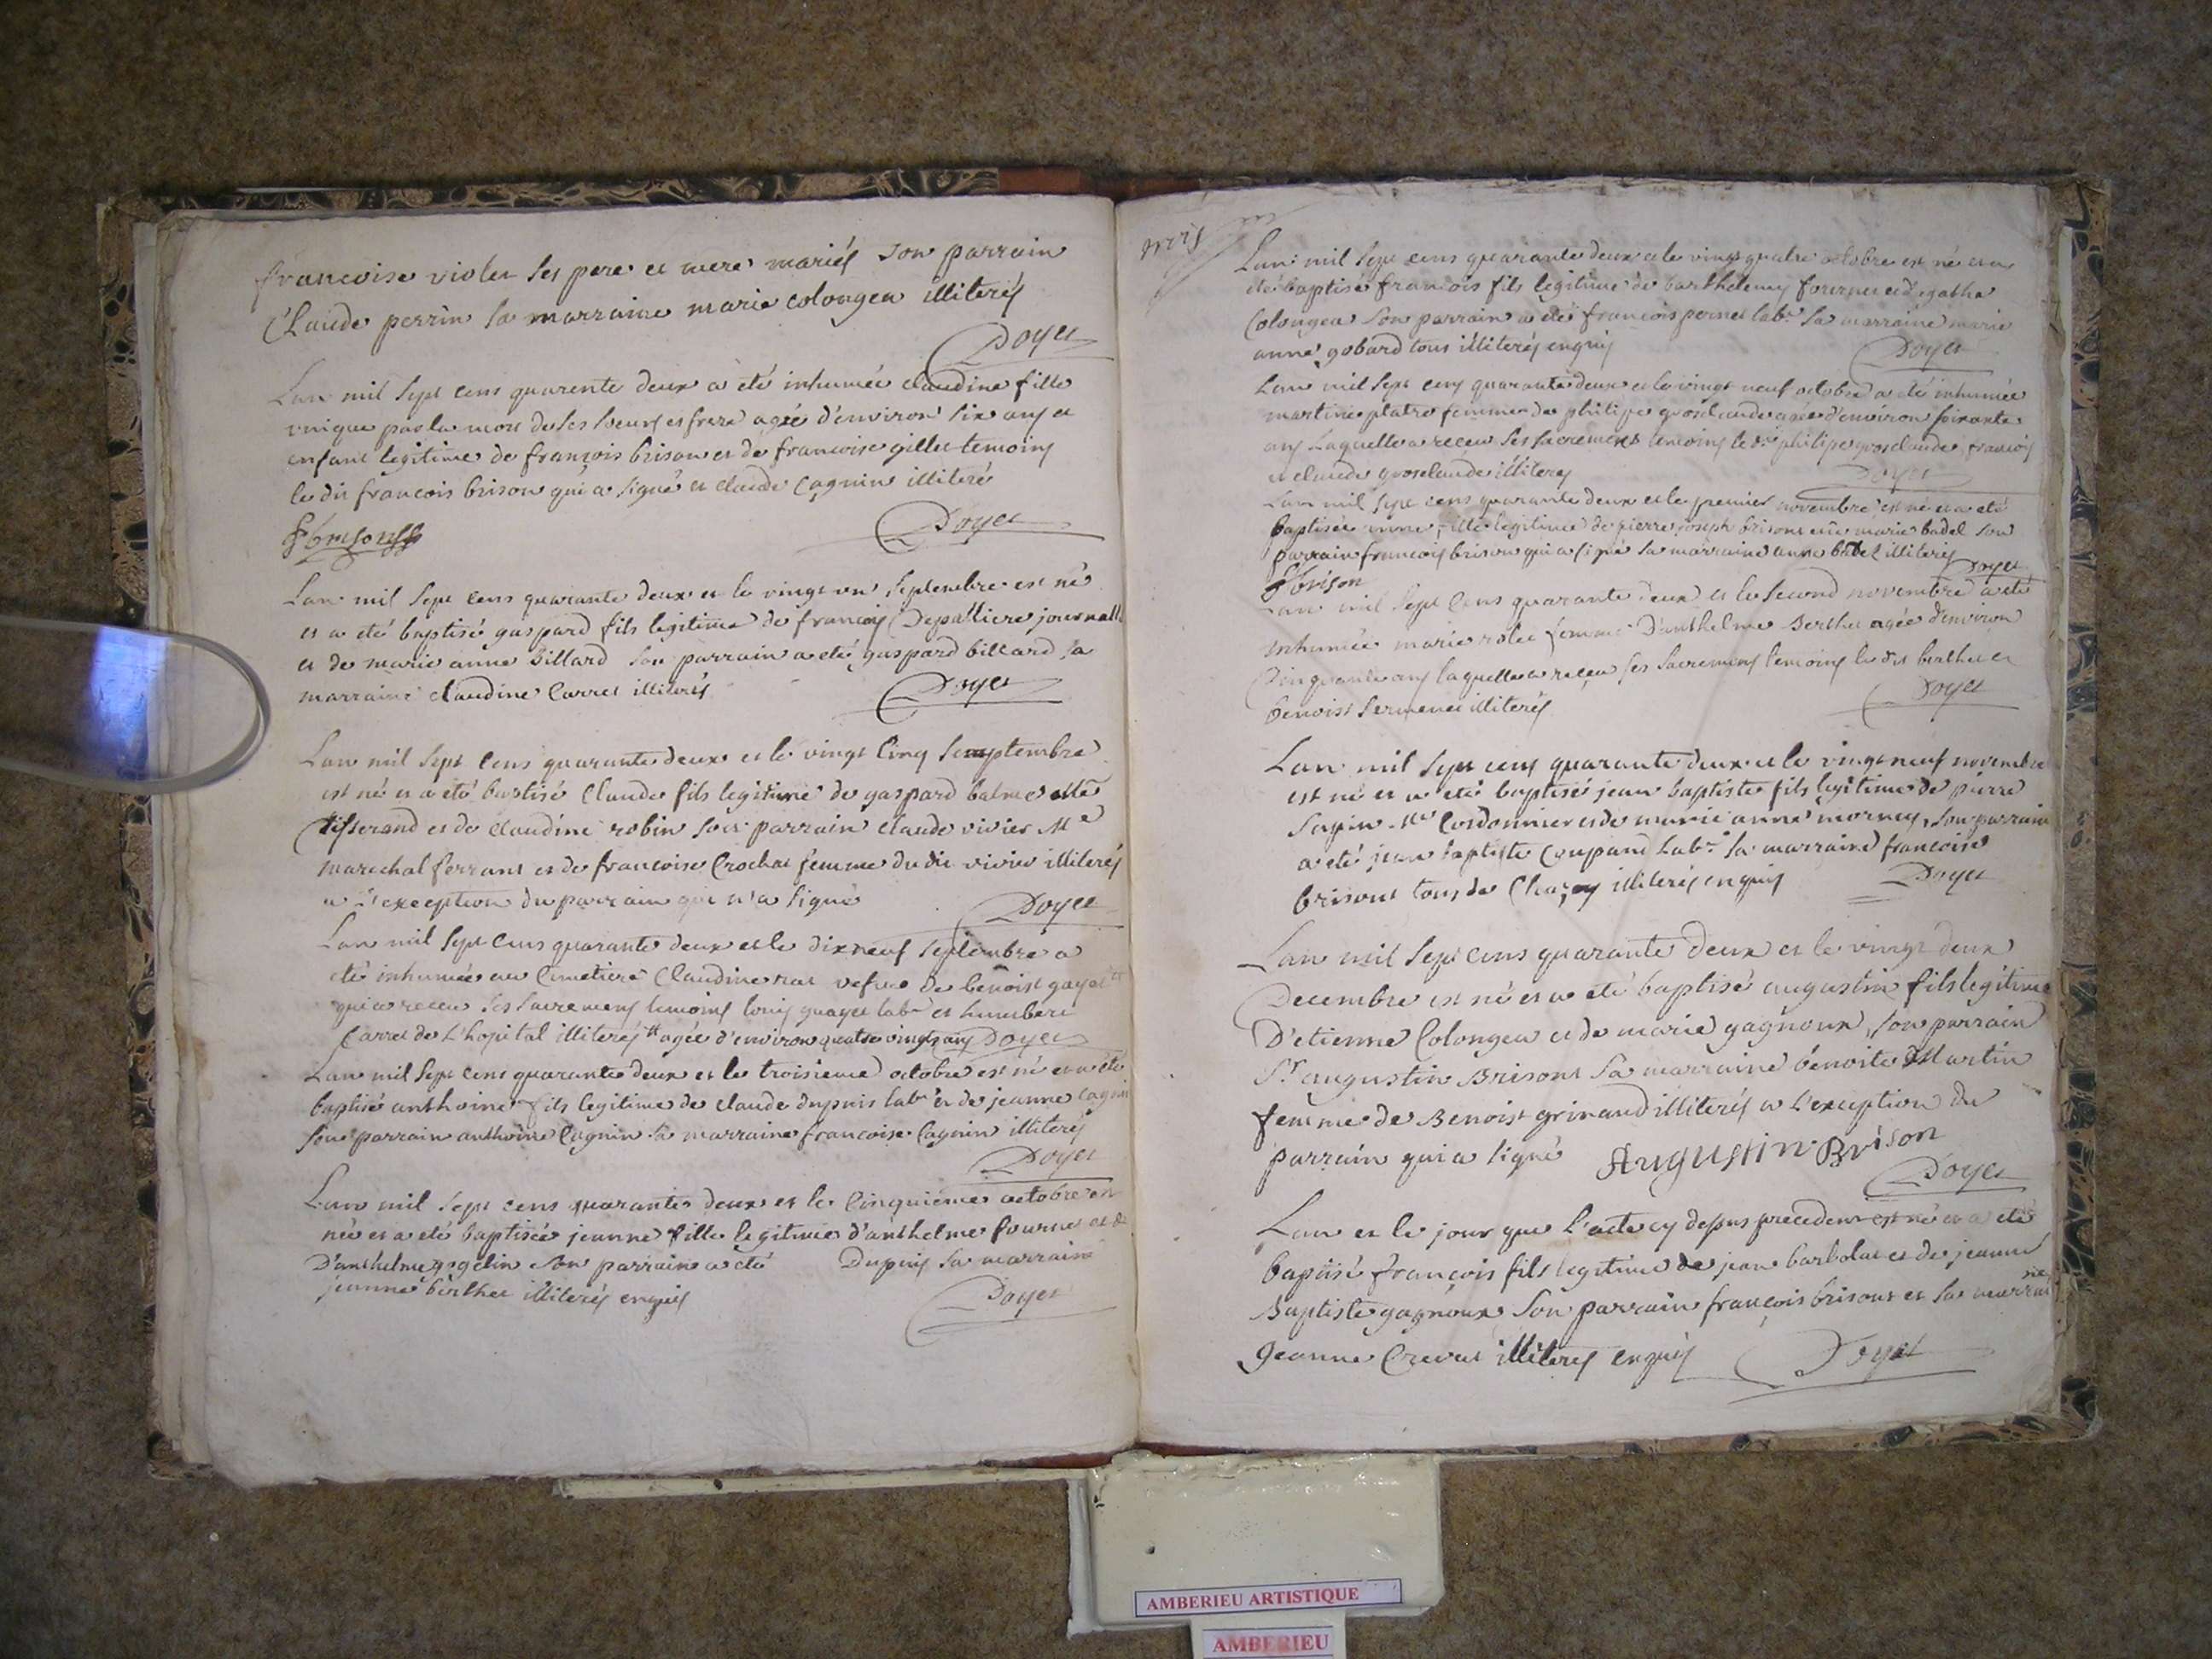 francoise violet ses pere et mere mariés son parrain
Claude perrin sa marraine marie colongea illiterés
Doyet
Lan mil sept cens quarente deux a été inhumée claudine fille
unique par la mort de ses soeurs et frere agée d'environ six ans et
enfant legitime de françois brison et de francoise gillet temoins
le dit francois brison qui a signé et claude cagnin illiteré
fbrison Doyet
Lan mil sept cens quarante deux et le vingt un septembre est né
et a eté baptisé gaspard fils legitime de francois Depalliere journall
et de marie anne Billard son parrain a eté gaspard billard sa
marraine claudine Carret illiterés Doyet
Lan mil sept cens quarante deux et le vingt cinq septembre
est né et a été baptisé Claude fils legitime de gaspard balme
tisserand et de claudine robin son parrain claude vivier Me
marechal ferrant et de francoise Crochat femme du dit vivier illiterés
a l'exception du parrain qui n'a signé Doyet
Lan mil sept cens quarante deux et le dix neuf septembre a
eté inhumée au Cimetiere Claudine vefve de benoist gayet
qui a receu ses sacremens temoins louis guayet labr et humbert
Carret de L'hopital illiterés agée d'environ quatre vingts ans Doyet
Lan mil sept cens quarante deux et le troisieme octobre est né et a eté
baptisé anthoine fils legitime de claude dupuis labr et de jeanne cagnin
son parrain anthoine Cagnin sa marraine francoise Cagnin illiterés
Doyet
Lan mil sept cens quarante deux et le Cinquiéme octobre est
née et a eté baptisée jeanne fille legitime d'anthelme fournier et de
D'anthelme gogelin son parrain a eté Dupuis sa marraine
jeanne berthet illiterés enquis Doyet
Lan mil sept cens quarante deux et le vingt quatre octobre est né et a
été baptisé francois fils legitime de barthelemy fournier et d'agatha
Colongea son parrain a eté francois pernet labr sa marraine marie
anne gobard tous illiterés enquis Doyet
Lan mil sept cens quarante deux et le vingt neuf octobre a eté inhumée
martine platre femme de philipe grosclaude agée d'environ soixante
ans laquelle a receu ses sacremens temoins le dit philipe grosclaude francois
et claude grosclaude illiterés Doyet
Lan mil sept cens quarante deux et le premier novembre est né et a eté
baptisée anne fille legitime de pierre joseph brison et de marie badel son
parrain francois brison qui a signé sa marraine anne badel illiterés
fbrison Doyet
Lan mil sept Cens quarante deux et le second novembre a eté
inhumée marie rolet femme D'anthelme Berthet agée denviron
Cinquante ans laquelle a receu ses sacremens temoins le dit berthet et
benoist illiterés Doyet
Lan mil sept cens quarante deux et le vingt neuf novembre
est né et a eté baptisé jean baptiste fils legitime de pierre
sapin Me Cordonnier et de marie anne mornay, son parrain
a eté jean baptiste Coupand Labr sa marraine francoise
brisont tous de Chazey illiterés enquis Doyet
Lan mil sept cens quarante deux et le vingt deux
Decembre est né et a eté baptisé augustin fils legitime
D'etienne Colongea et de marie gagnoux, son parrain
Sr augustin Brisont sa marraine benoite Martin
femme de Benoist grinand illiterés a l'exception du
parrain qui a signé Augustin Brison
Doyet
Lan et le jour que L'acte cy dessus precedent est né et a eté
baptisé françois fils legitime de jean barbolat et de jeanne
Baptiste gagnoux son parrain françois brisont et sa marraine
Jeanne Crevat illiterés enquis Doyet
AMBERIEU ARTISTIQUE
AMBERIEU